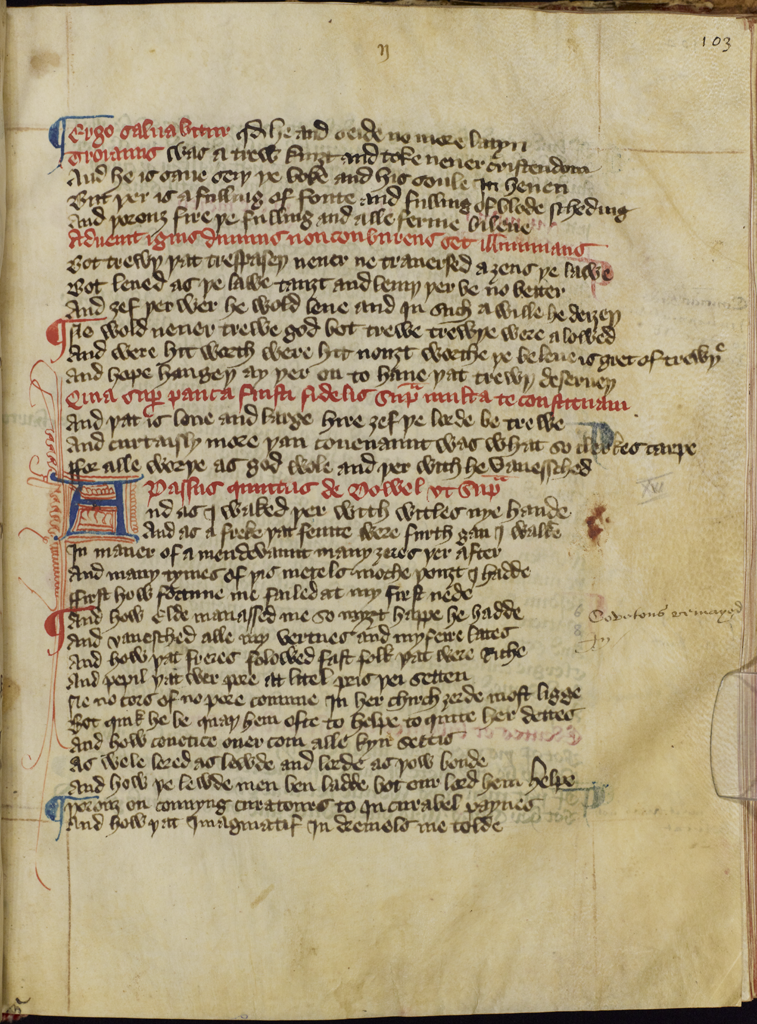 103
Ergo saluabitur qd he and seide no more latyn
Troianus was a trew knyzt and toke neuer cristendom
And he is saue seiy þe boke and his soule In heuen
But þer is a fulling of fonte and fulling of blode scheding
And þorouz fire þe fulling and alle ferme bileue
Aduenit ignis diuinus non conburens set illuminans
Bot trewþ þat trespasey neuer ne trauersed azens þe lawe
Bot leued as þe lawe tauzt and leuiy þer be no better
And zef þer wer he wold leue and in such a wille he deizeþ
Ne wold neuer trewe god bot trewe trewþe were alowed
And were hit worth were hit nouzt worthe þe beleue is gret of trewþ
And hope hangeþ ay þer on to haue þat trewþ deserueþ
Quia supr pauca fuisti fidelis supra multa te constituam
And þat is loue and large hire zef þe lorde be trewe
And curtaisly more þan couenaunt was what so clerkes carpe
ffor alle worþe as god wole and þer with he vanessched
Passus quintus de Dowel vt supra
And as I waked þer with witles nye hande
And as a freke þat feuute were furth gan I walke
In maner of a mendevaunt many zeres þer after
And many tymes of þis metels moche þouzt I hadde
ffirst how fortune me failed at my first nede
And how Elde manassed me so myzt happe he hadde
And vanesched alle my vertues and my feire lates
And how þat freres folowed fast folk þat were Riche
And pepil þat wer pore at litel pris þei setten
Ne no cors of no pore comune In her chirch zerde most ligge
Bot quik he be quaþ hem ofte to helpe to quite her dettes
And how couetice ouer com alle kyn settis
As wele lered as lewde and lorde as þow bonde
And how þe lewde men ben ladde bot our lord hem helpe
þorouz on connyng curatoures to Incurabel paynes
And how þat Imaginatif In dremels me tolde